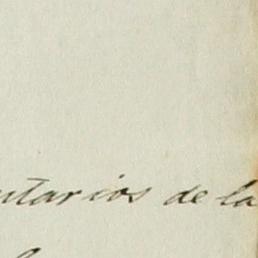 ntarios de la